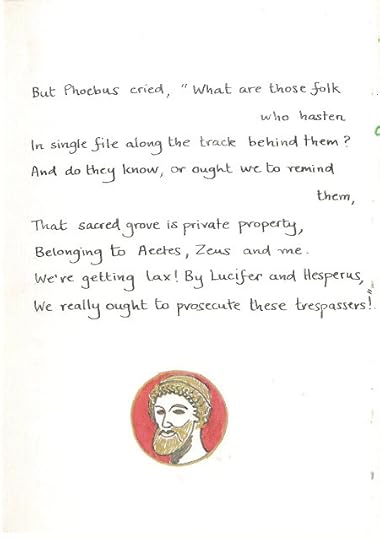 But Phoebus cried, "What are those folk
who hasten
In single file along the track behind them?
And do they know, or ought we to remind
them,
That sacred grove is private property,
Belonging to Aeetes, Zeus and me.
We're getting lax! By Lucifer and Hesperus,
We really ought to prosecute these trespassers!"